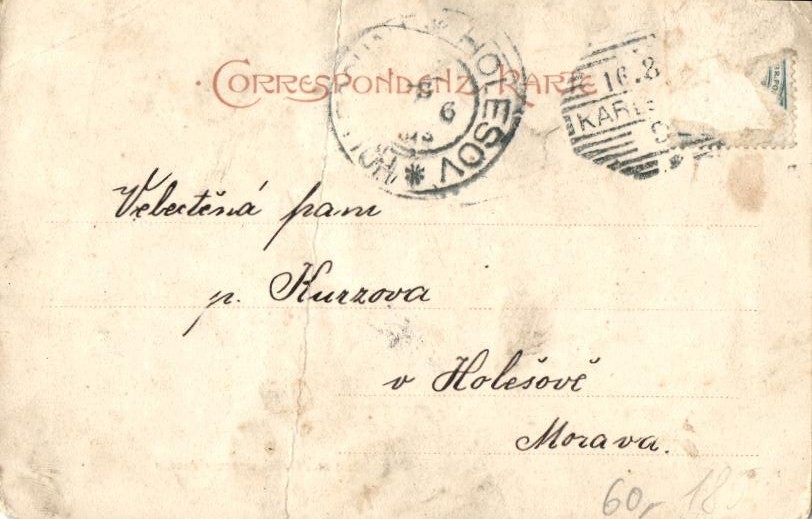 CORRESPONDENZ-KARTE
HOLESOV
16.8
KARLS
Velectěná pani
p. Kurzova
v Holešově
Morava.
60,-